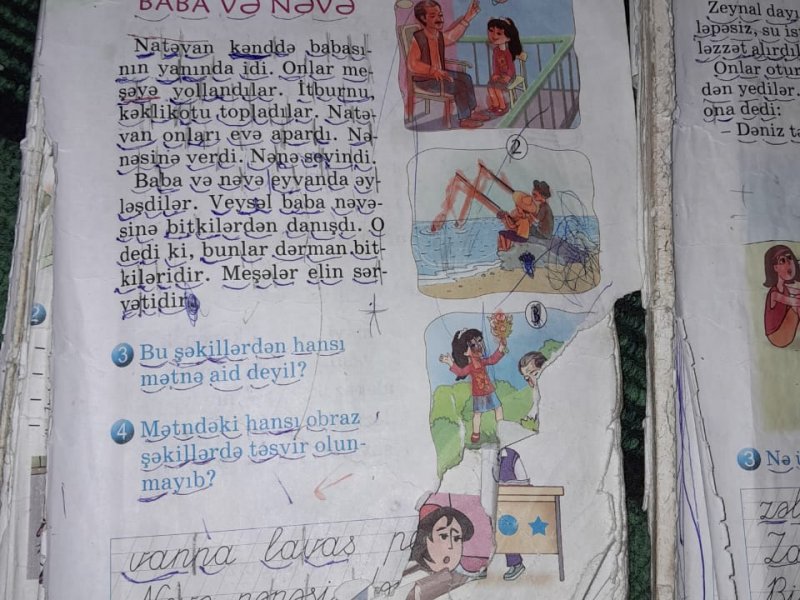 BABA VƏ NƏVƏ
Natəvan kənddə babası-
nın yanında idi. Onlar me-
şəyə yollandılar. İtburnu,
kəklikotu topladılar. Natə-
van onları evə apardı. Nə-
nəsinə verdi. Nənə sevindi.
Baba və nəvə eyvanda əy-
ləşdilər. Veysəl baba nəvə-
sinə bitkilərdən danışdı. O
dedi ki, bunlar dərman bit-
kiləridir. Meşələr elin sər-
vətidir.
3 Bu şəkillərdən hansı
mətnə aid deyil?
4 Mətndəki hansı obraz
şəkillərdə təsvir olun-
mayıb?
vanna lavaş
2
2
Zeynal dayı
ləpəsiz, su
ləzzət
Onlar
dən yedilər.
ona dedi:
– Dəniz
3 Nə